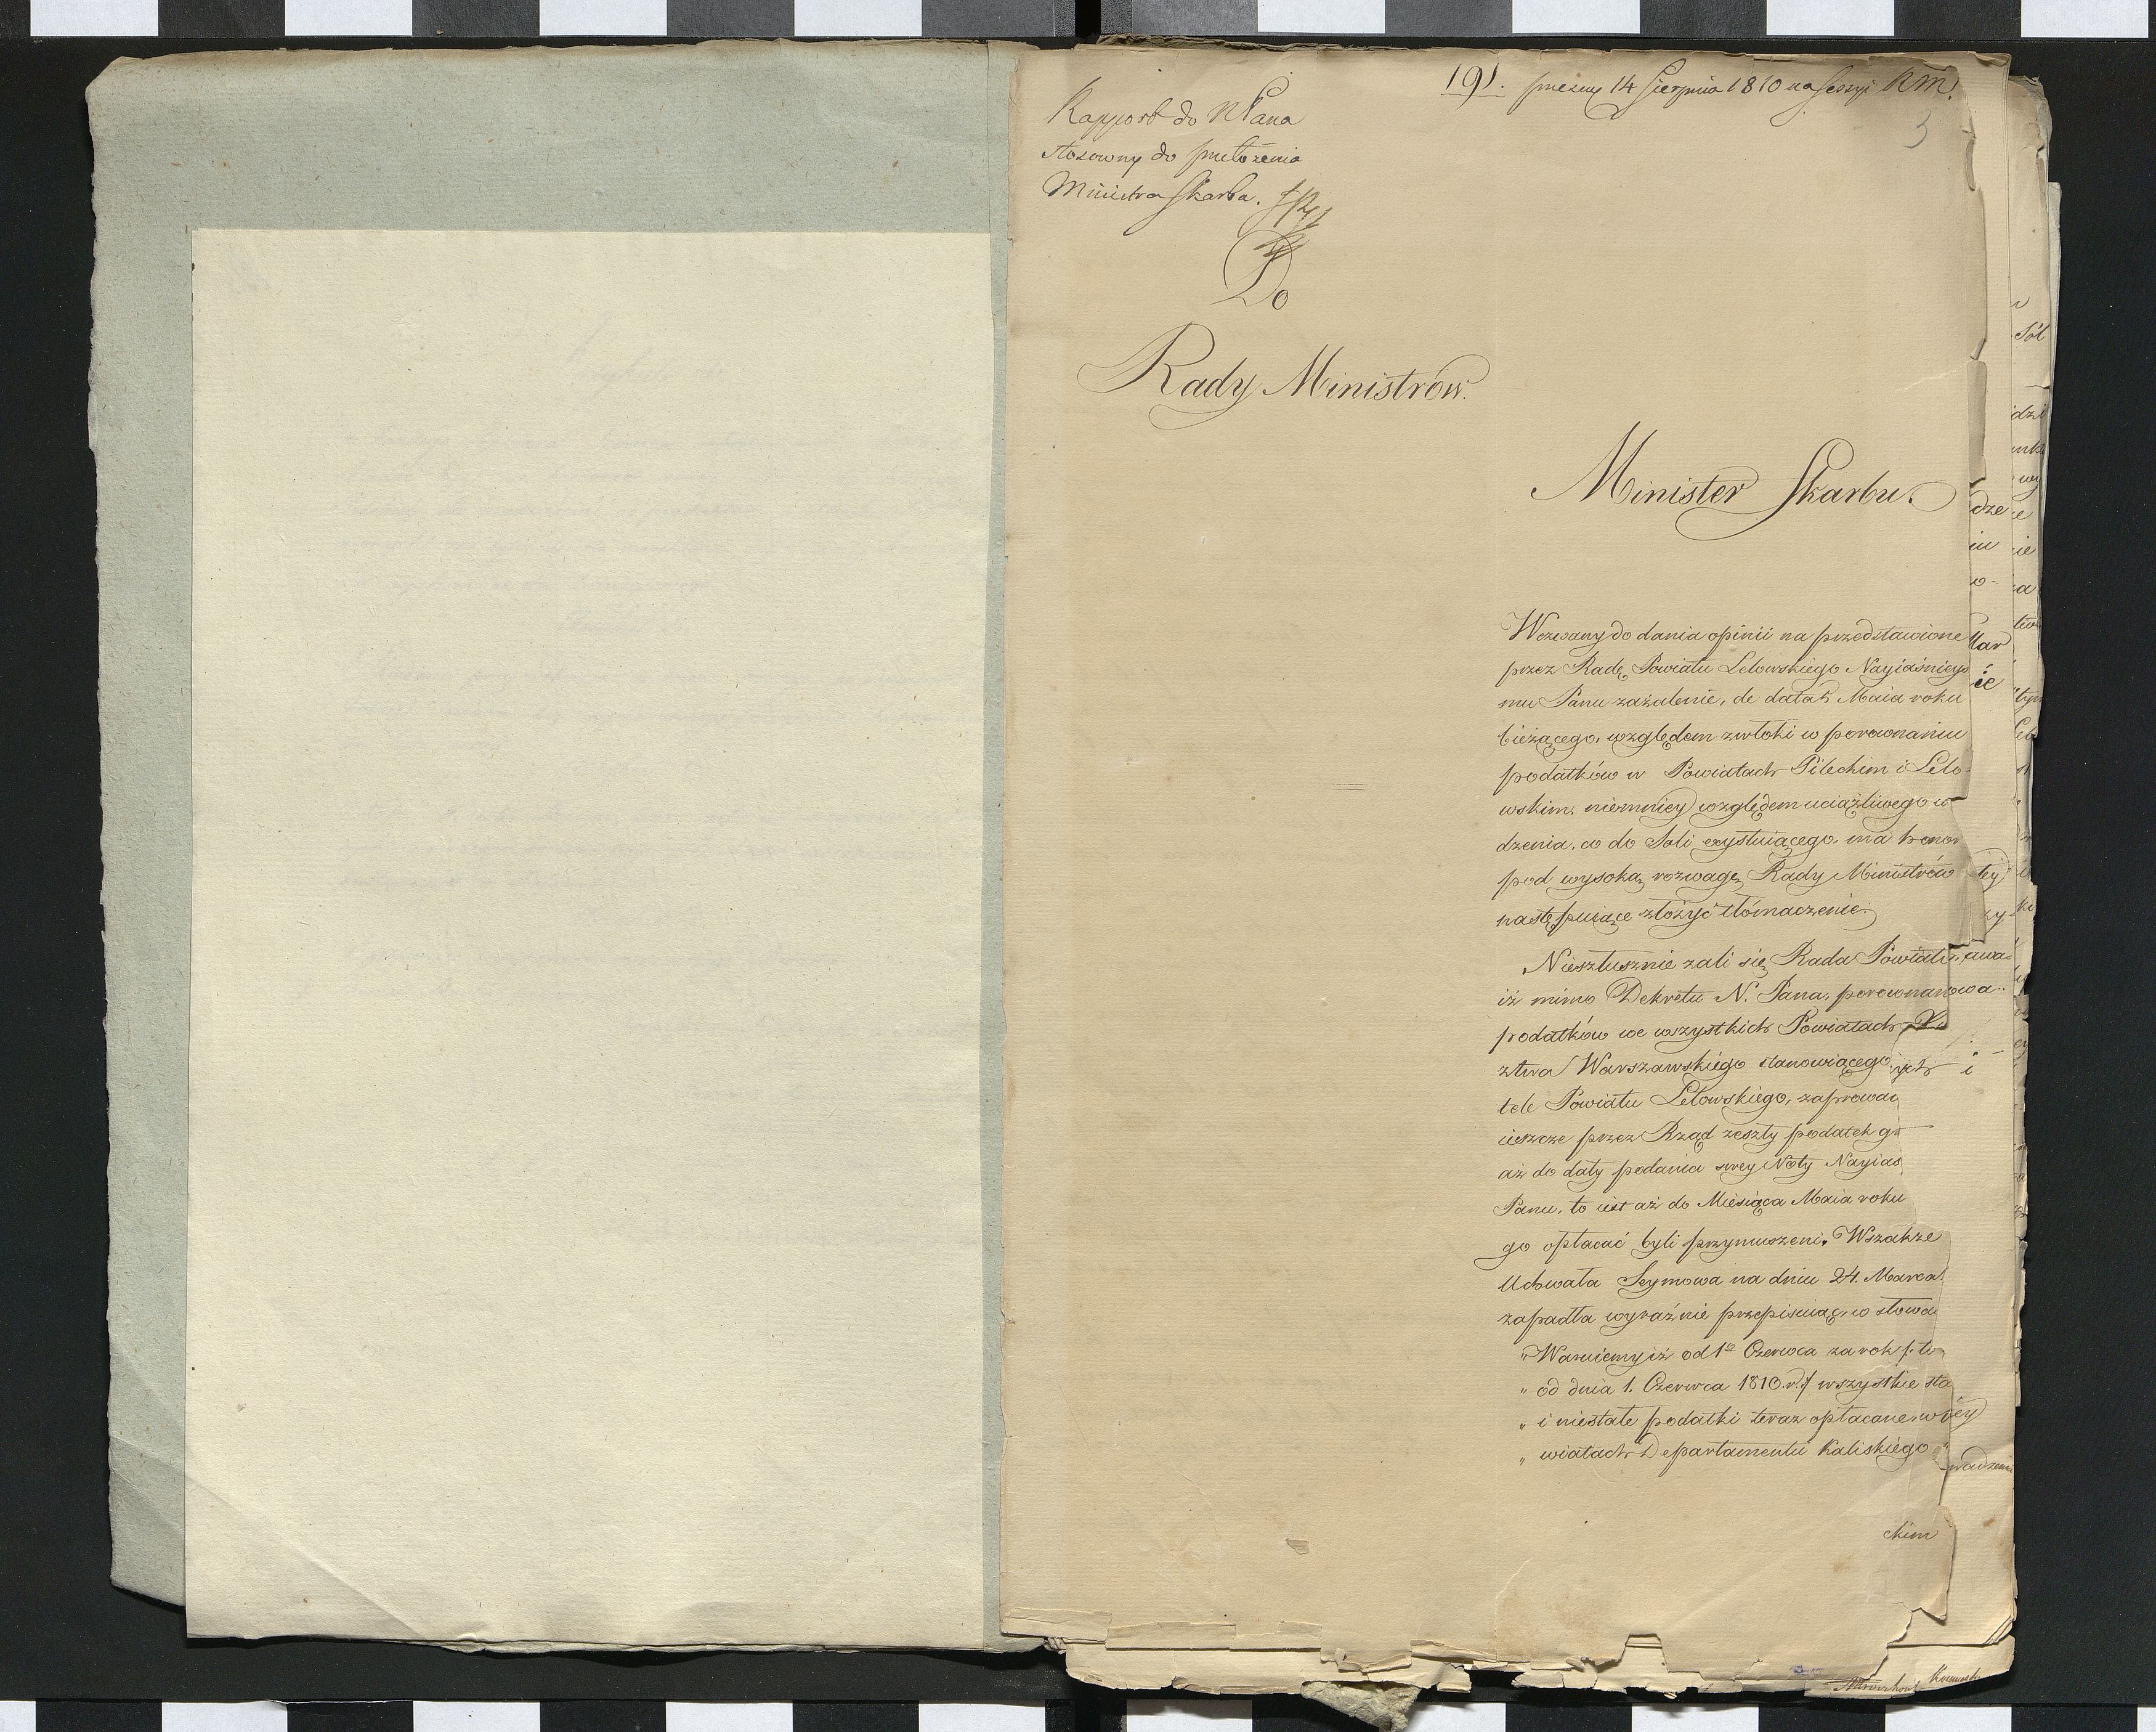 191. 14 Sierpnia 1810 na Sessyi RM.
3
Rapport do NPana
stosowny do przełożenia
Ministra Skarbu.
Do
Rady Ministrów.
Minister Skarbu.
Wezwany do dania opinii na przedstawione
przez Radę Powiatu Lelowskiego Nayiaśnieys
mu Panu zażalenie, de dato Maia roku
bieżącego, względem zwłoki w porównaniu
podatków w Powiatach Pileckim i Lelo-
wskim, niemniey względem uciążliwego
dzenia, co do Soli exystuiącego, ma honor
pod wysoką rozwagę Rady Ministrów
następuiące złożyć tłómaczenie.
Niesztusznie żali się Rada Powiatu,
iż mimo Dekretu N. Pana, porównan
podatków we wszystkich Powiatach X
ztwa Warszawskiego stanowiącego,
tele Powiatu Lelowskiego, zaprowa
ieszcze przez Rząd zeszły podatek g
aż do daty podania swey Noty Nayias
Panu, to iest aż do Miesiąca Maia roku
go opłacać byli przymuszeni. Wszakże
Uchwała Seymowa na dniu 24. Marca
zapadła wyraźnie przepisuiąc, w słowa
„ Waruiemy iż od 1go Czerwca za rok /: to
„ od dnia 1. Czerwca 1810. r. :/ wszystkie sta
„ i niestałe podatki teraz opłacane w
„ wiatach Departamentu Kaliskiego
ckim